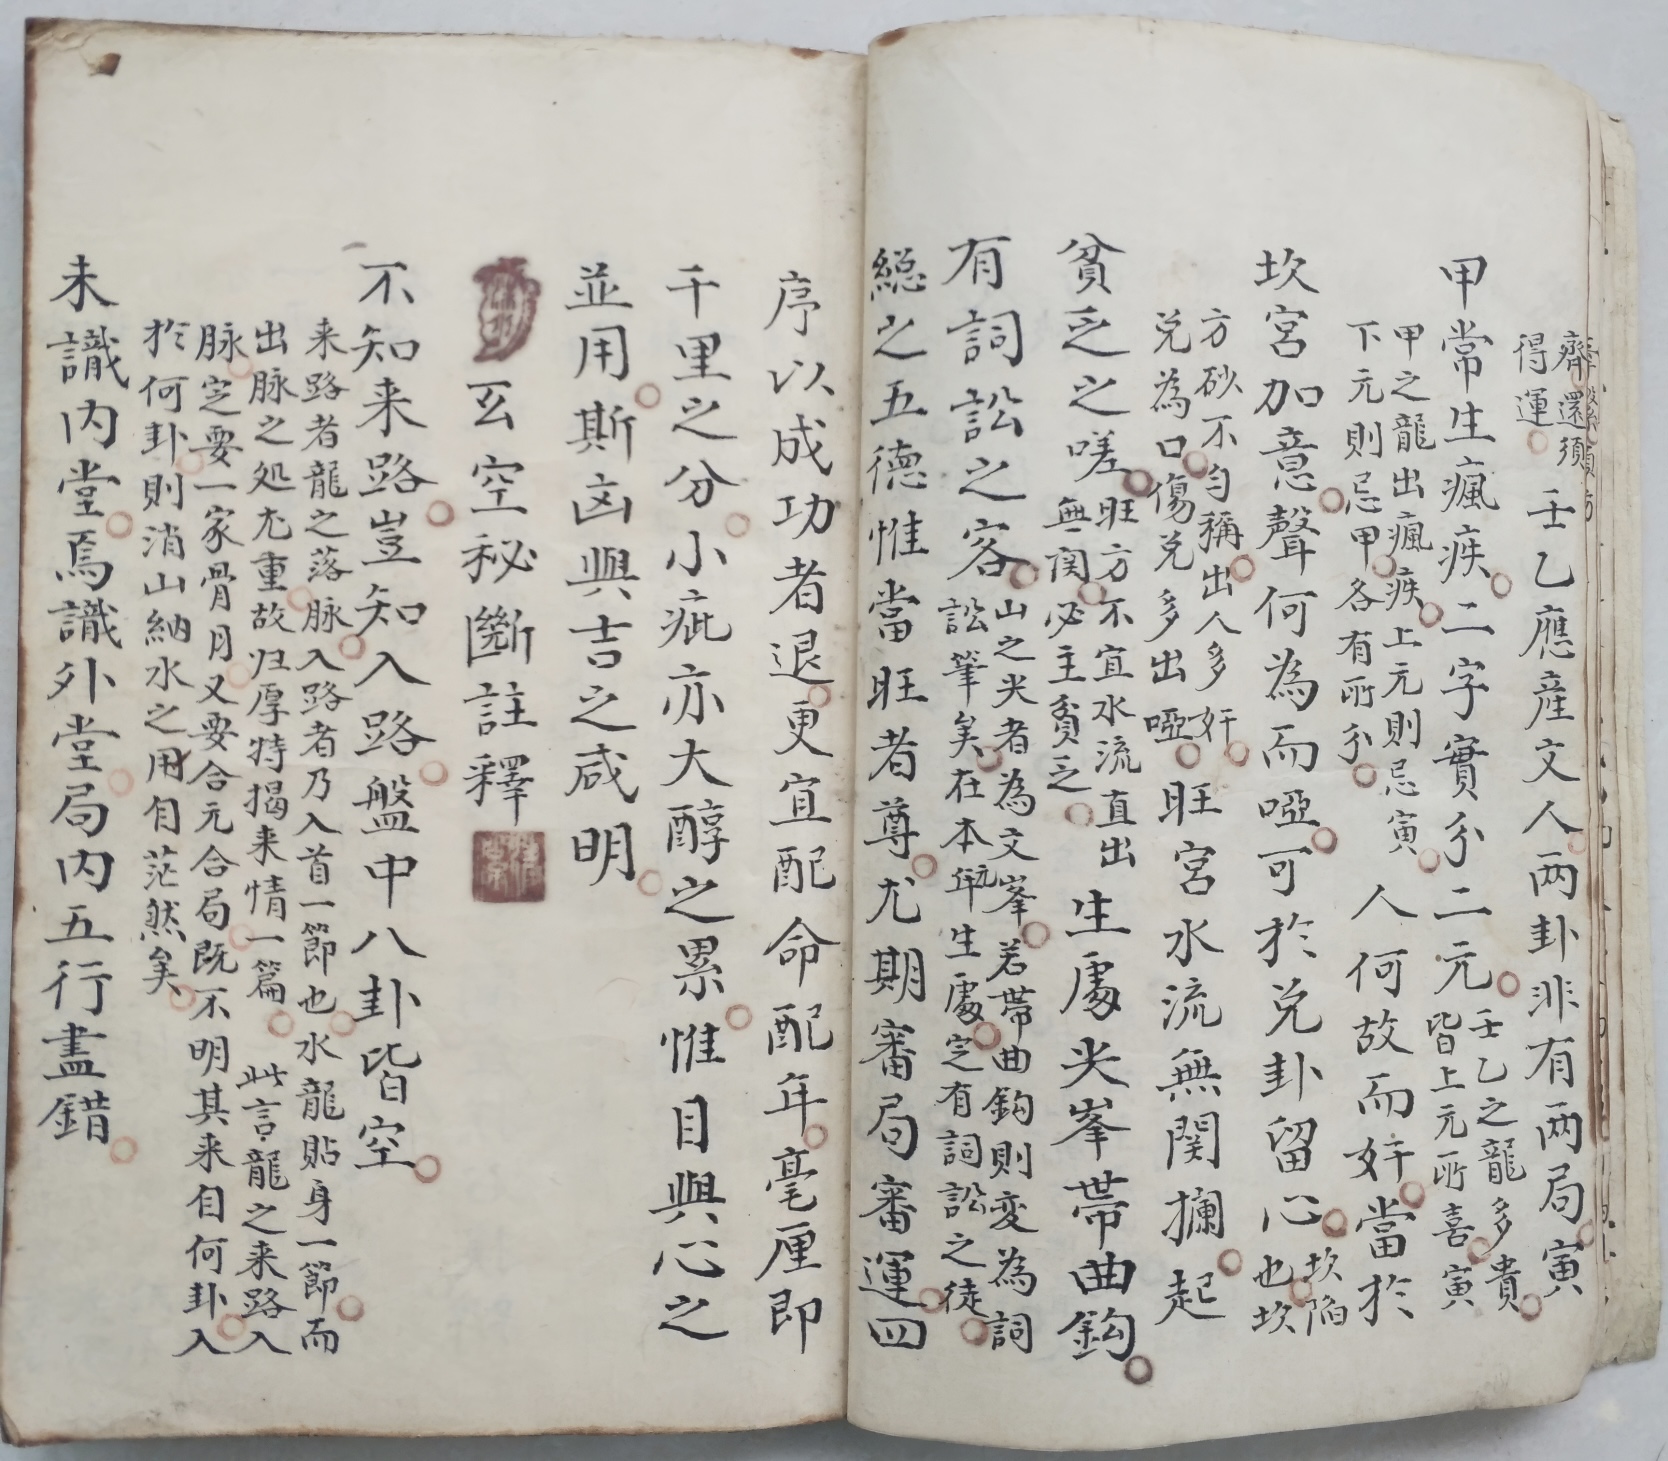 齊還須
得運
壬乙應産文人两卦非有两局寅
甲常生瘋疾二字實分二元
壬乙之龍多貴
皆上元所喜寅
甲之龍出瘋疾上元則忌寅
下元則忌甲各有所分
人何故而奸當於
坎宮加意聲何為而啞可於兑卦留心
坎陷
也坎
方砂不匀稱出人多奸
兑為口傷兑多出啞
旺宮水流無関攔起
貧乏之嗟
旺方不宜水流直出
無関必主貧乏
生處尖峯帶曲鈎
有詞訟之客
山之尖者為文峯若帶曲鈎則变為詞
訟筆矣在本元生處定有詞訟之徒
総之五德惟當旺者尊尤期審局審運四
序以成功者退更宜配命配年毫厘即
千里之分小疵亦大醇之累惟目與心之
並用斯凶與吉之咸明
玄空秘斷註釋
不知来路豈知入路盤中八卦皆空
来路者龍之落脉入路者乃入首一節也水龍貼身一節而
出脉之処尤重故归厚特揭来情一篇 此言龍之来路入
脉定要一家骨月又要合元合局既不明其来自何卦入
於何卦則消山納水之用自茫然矣
未識内堂焉識外堂局内五行盡錯